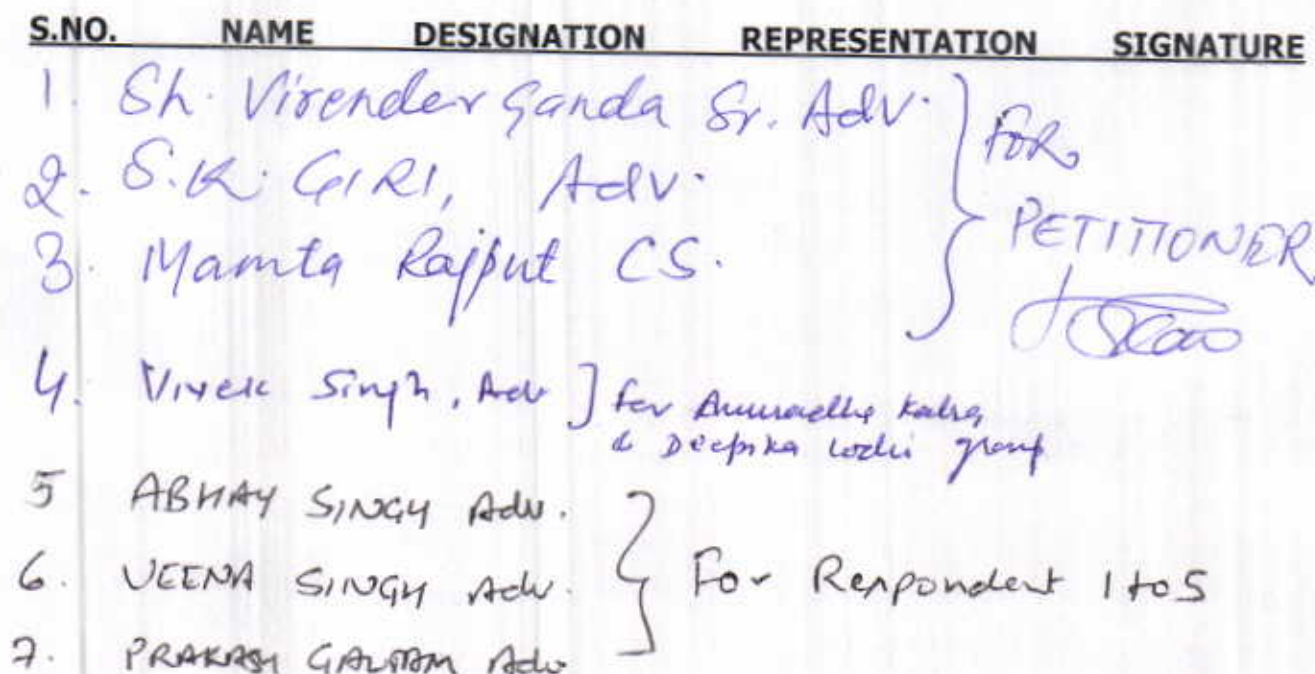 S.NO. NAME DESIGNATION REPRESENTATION SIGNATURE
1. Sh. Virender Ganda Sr. Adv.
2. S.K. GIRI, Adv.
3. Mamta Rajput CS.
FOR
PETITIONER
4. Vivek Singh, Adv ] for Anuradha Kalra
& Deepika Lodhi group
5 ABHAY SINGH Adv.
6. VEENA SINGH Adv.
7. PRAKASH GAUTAM Adv
For Respondent 1 to 5